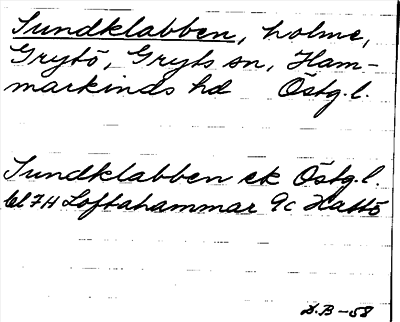 Sundklabben, holme,
Grytö, Gryts sn, Ham-
markinds hd Östg.l.
Sundklabben ek Östg.l.
bl 7H Loftahammar 9c Hattö
D.B-58